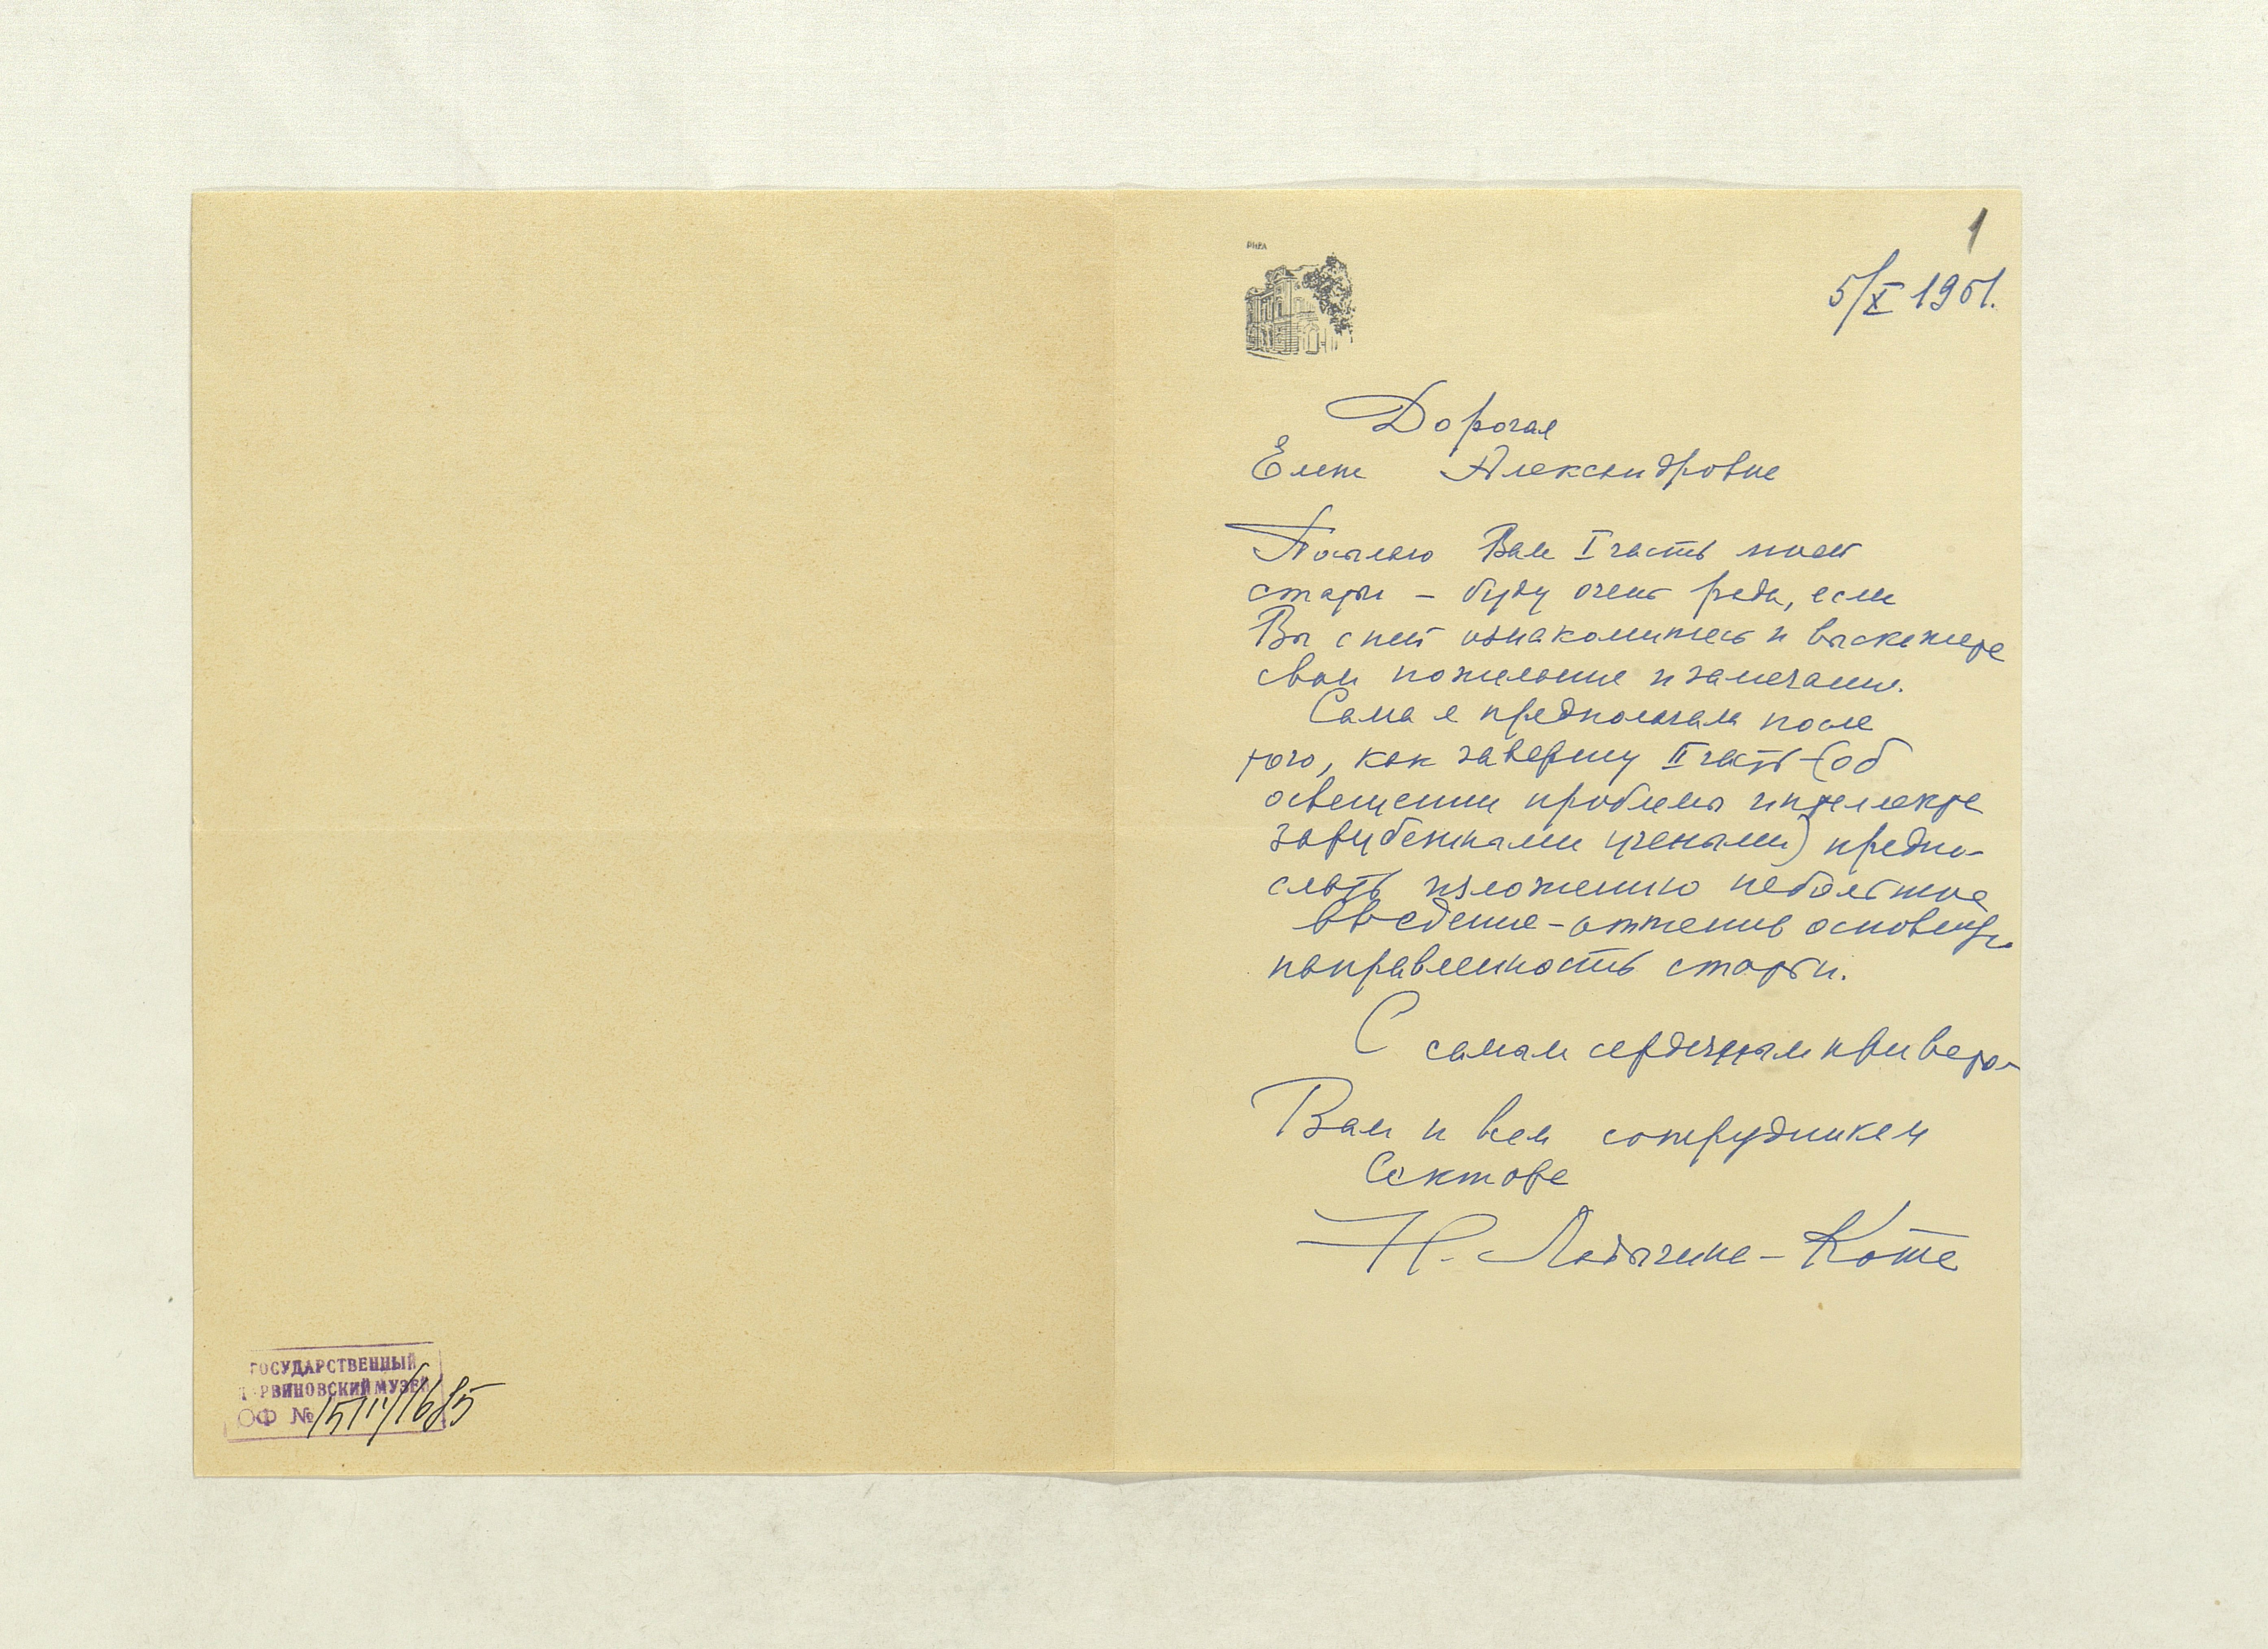 1
5/X 1961.
РИГА
Дорогая
Елена Александровна
Посылаю Вам I часть моей
статьи – буду очень рада, если
Вы с ней ознакомитесь и выскажете
свои пожелания и замечания.
Сама я предполагала после
того, как завершу II часть (об
освещении проблемы интеллекта
зарубежными учеными) предпо-
слать изложению небольшое
введение – оттенив основную
направленность статьи.
С самым сердечным приветом
Вам и всем сотрудникам
Сектора
Н. Ладыгина-Котс
ГОСУДАРСТВЕННЫЙ
ДАРВИНОВСКИЙ МУЗЕЙ
ОФ №